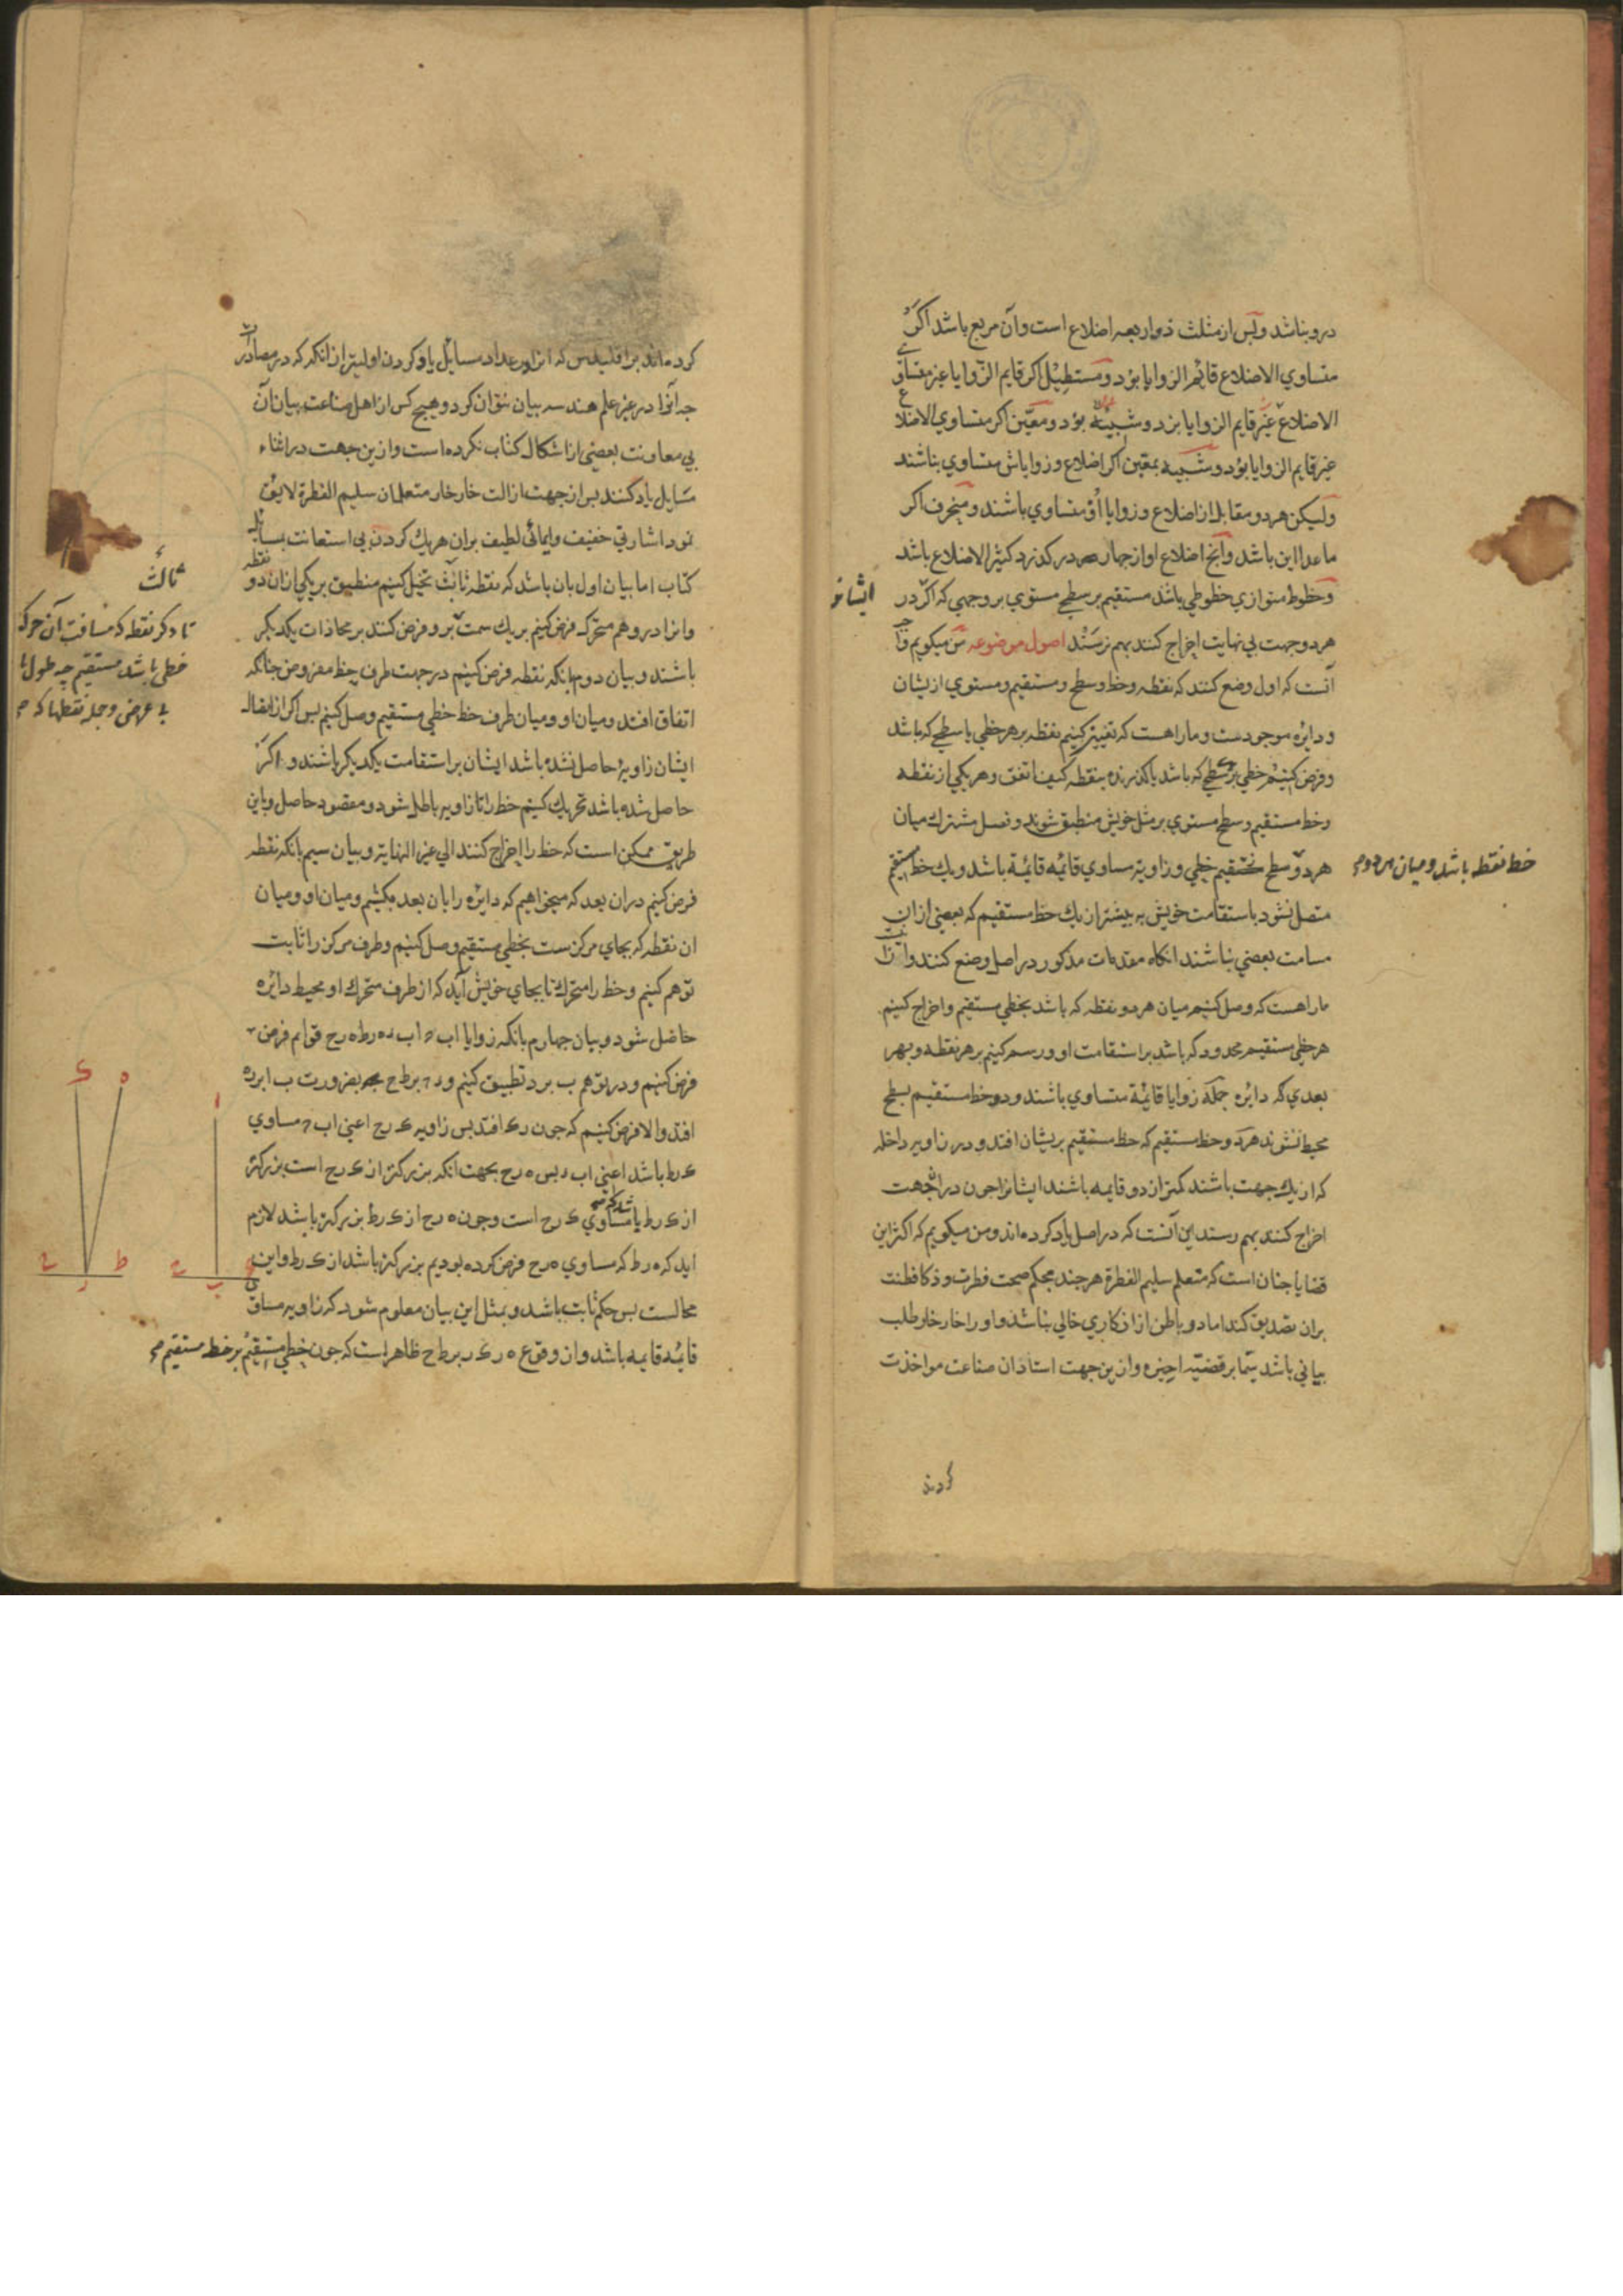 درو نباشد و پس از مثلث ذو اربعه اضلاع است و آن مربع باشد اکر
متساوي الاضلاع قائم الزوايا بود و مستطيل اکر قايم الزوايا غير متساوي
الاضلاع غير قايم الزوايا بود و معين اکر متساوي الاضلاع
غير قايم الزوايا بود و شبيه بمعين اکر اضلاع و زواياش متساوي نباشند
وليکن هر دو مقابل از اضلاع و زوايا او متساوي باشند و منحرف اکر
ماعدا اين باشد و آنچ اضلاع او از چهار در کذرد کثير الاضلاع باشد
و خطوط متوازي خطوطي باشد مستقيم بر سطح مستوي بر وجهي که اکر در
ايشانرا
هر دو جهت بي نهايت اخراج کنند بهم نرسند اصول موضوعه ميکويم
آنست که اول وضع کنند که نقطه و خط و سطح و مستقيم و مستوي ازيشان
و دايره موجودست و ما را هست که تعيين کنيم نقطه بر هر خطي يا سطحي که باشد
و فرض کنيم خطي بر سطحي که باشد يا کذرنده بنقطه کيف اتفق و هر يکي از نقطه
و خط مستقيم و سطح مستوي بر مثل خويش منطبق شوند و فصل مشترک ميان
هر دو سطح مستقيم خطي و زاويه مساوي قائمه قائمه باشد و يک خط مستقيم
خط نقطه باشد و ميان هر دو
متصل نشود باستقامت خويش به بيشتر از يک خط مستقيم که بعضي از ان
مسامت بعضي نباشند انکاه مقدمات مذکور در اصل وضع کنند
ما را هست که وصل کنيم ميان هر دو نقطه که باشد بخطي مستقيم و اخراج کنيم
هر خطي مستقيم محدود که باشد بر استقامت او و رسم کنيم بر هر نقطه و بهر
بعدي که دائره جمله زوايا قائمة متساوي باشند و دو خط مستقيم بسطح
محيط نشوند هر دو خط مستقيم که خط مستقيم بريشان افتد و در زاويه داخله
که از يک جهت باشند کمتر از دو قايمه باشند ايشانرا چون دران جهت
اخراج کنند بهم رسند اين آنست که در اصل ياد کرده اند و من ميکويم که اکثر اين
قضايا چنان است که متعلم سليم الفطرة هر چند بحکم صحت فطرت و ذکا فطنت
بران تصديق کند اما درو باطن از انکاري خالي نباشد و او را خار خار طلب
بياني باشد سيما بر قضيه اخيره و ازين جهت استادان صناعت مواخذت
کردند
کرده اند بر اقليدس که انرا در عداد مسايل ياد کردن اوليتر ازانکه که در مصادرات
چه آنرا در غير علم هندسه بيان نتوان کرد و هيچ کس از اهل صناعت بيان آن
بي معاونت بعضي از اشکال کتاب نکرده است و ازين جهت در اثناء
مسايل ياد کنند پس از جهت ازالت خار خار متعلمان سليم الفطرة لايق
نمود اشارتي خفيف و ايمائي لطيف بران هر يک کردن بي استعانت بمسايل
کتاب اما بيان اول بان باشد که نقطه ثابت تخيل کنيم منطبق بر يکي ازان دو نقطه
ثالث
وانرا در وهم متحرک فرض کنيم بر يک سمت برو فرض کنند بر محاذات يکديکر
تا دکر نقطه که مسافت آن حرکة
خطي باشد مستقيم چه طول
بي عرض و جمله نقطها که
باشند و بيان دوم بانکه نقطه فرض کنيم در جهت طرف خط مفروض چنانکه
اتفاق افتد و ميان او و ميان طرف خط خطي مستقيم وصل کنيم پس اکر از اتصال
ايشان زاويۀ حاصل نشده باشد ايشان بر استقامت يکديکر باشند و اکر
حاصل شده باشد تحريک کنيم خط را تا زاويه باطل شود و مقصود حاصل و باين
طريق ممکن است که خط را اخراج کنند الي غير النهايه و بيان سيم بانکه نقطه
فرض کنيم دران بعد که ميخواهيم که دائره را بان بعد بکشيم و ميان او و ميان
ان نقطه که بجاي مرکزست بخطي مستقيم وصل کنيم و طرف مرکز را ثابت
توهم کنيم و خط را متحرک تا بجاي خويش آيد که از طرف متحرک او محيط دائره
حاصل شود و بيان چهارم بانکه زوايا اب ه ر ط ه ر ح قوايم فرض
فرض کنيم و در توهم ب بر ر تطبيق کنيم و بر ط ح بضرورت ب ا بر ره
افتد و الا فرض کنيم که چون ر ک افتد پس زاويه ک ر ح اعني اب مساوي
ک ر ط باشد اعني اب پس ه ر ح بجهت انکه بزرکتر از ک ر ح است بزرکتر
از ک ر ط يا مساوي ک ر ح است و چون ه ر ح از ک ر ط بزرکتر باشد لازم
ايد که ه ر ط که مساوي ه ر ح فرض کرده بوديم بزرکتر باشد از ک ر ط و اين
محالست پس حکم ثابت باشد و بمثل اين بيان معلوم شود که زاويه مساوي
قائمه قايمه باشد و از وقوع ه ر ک ر بر ط ح ظاهر است که چون خطي مستقيم بر خط مستقيم
ک ه ا
ح ر ط ح ب